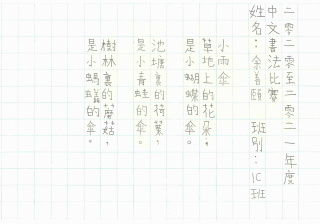 二零二零至二零二一年度
中文書法比賽
姓名：余 頤 班別：1C班
小雨傘
草地上的花朵，
是小蝴蝶的傘。
池塘裏的荷葉，
是小青蛙的傘。
樹林裏的蘑菇，
是小螞蟻的傘。